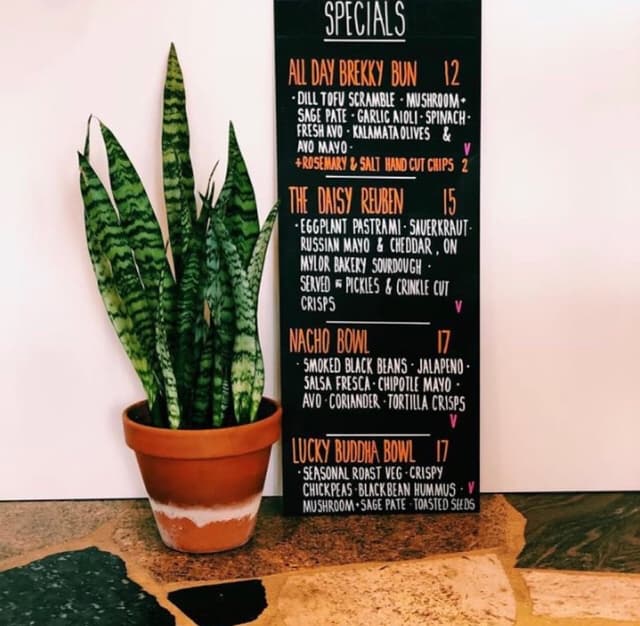 SPECIALS
ALL DAY BREKKY BUN 12
· DILL TOFU SCRAMBLE · MUSHROOM +
SAGE PATE · GARLIC AIOLI · SPINACH ·
FRESH AVO · KALAMATA OLIVES &
AVO MAYO · V
+ ROSEMARY & SALT HAND CUT CHIPS 2
THE DAISY REUBEN 15
· EGGPLANT PASTRAMI · SAUERKRAUT ·
RUSSIAN MAYO & CHEDDAR, ON
MYLOR BAKERY SOURDOUGH ·
SERVED W PICKLES & CRINKLE CUT
CRISPS V
NACHO BOWL 17
· SMOKED BLACK BEANS · JALAPENO ·
SALSA FRESCA · CHIPOTLE MAYO ·
AVO · CORIANDER · TORTILLA CRISPS
V
LUCKY BUDDHA BOWL 17
· SEASONAL ROAST VEG · CRISPY
CHICKPEAS · BLACKBEAN HUMMUS · V
MUSHROOM + SAGE PATE · TOASTED SEEDS